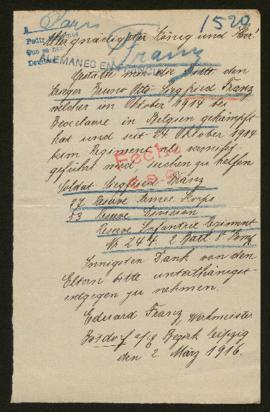 Paris
1520
Allergnädigster König und Herr!
Franz
ALEMANES EN
Gestatte mir die Bitte den
Sanger Bruno Otto Siegfried Franz
welcher im Oktober 1914 bei
in Belgien gekämpft
hat und seit 24 Oktober 1914
beim Regiment als vermißt
geführt wird, suchen zu helfen
Fecha
Soldat Siegfried Franz
27 Reserve Armee Korps
53 Reserve Division
Reserve Infanterie Regiment
Nr 244 2 Batl. 8 Komp
Innigsten Dank von den
Eltern bitte
entgegen zu nehmen.
Eduard Franz, Werkmeister
Bezirk Leipzig
den 2 März 1916.